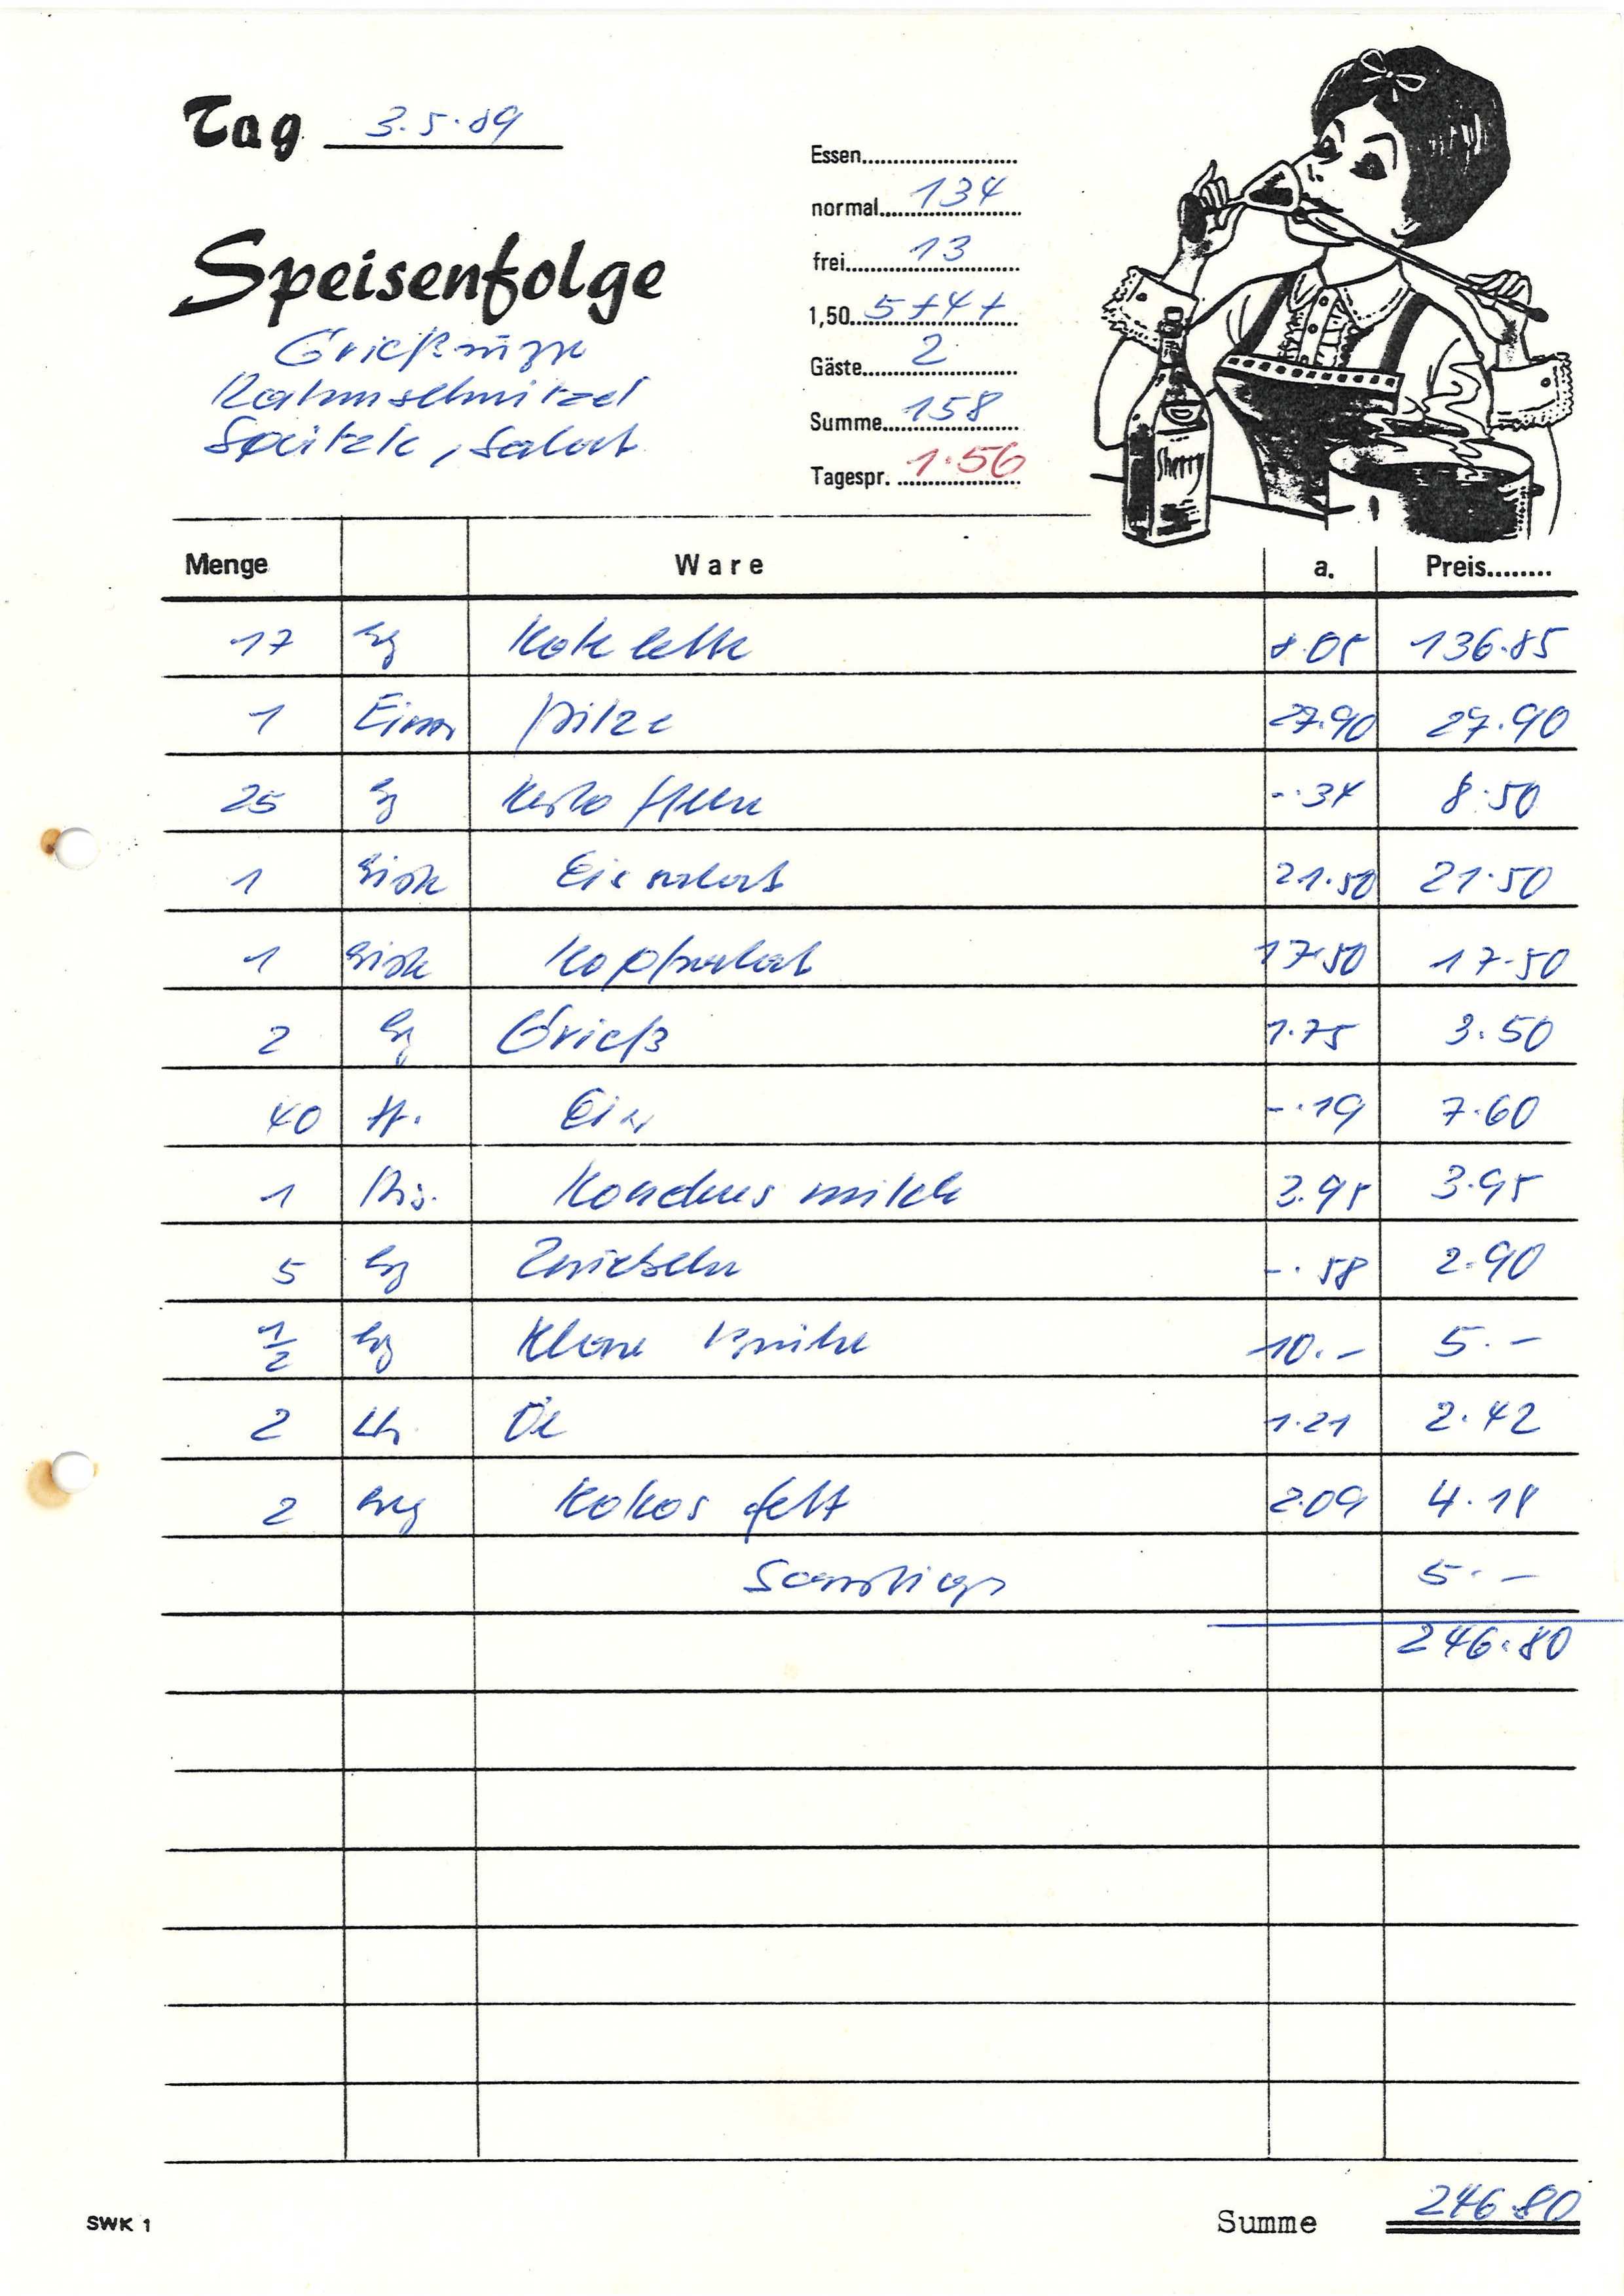 Tag 3.5.89
Speisenfolge
Grießsuppe
Rahmschnitzel
Spätzle, Salat
Essen
normal 134
frei 13
1,50 5+4+
Gäste 2
Summe 158
Tagespr. 1.56
Sherry
Menge Ware a. Preis
17 kg Kotelette 8.05 136.85
1 Eimer Pilze 27.90 27.90
25 kg Kartoffeln -.34 8.50
1 Kiste Eissalat 21.50 21.50
1 Kiste Kopfsalat 17.50 17.50
2 kg Grieß 1.75 3.50
40 St. Eier -.19 7.60
1 Kondensmilch 3.95 3.95
5 kg Zwiebeln -.58 2.90
1/2 kg Klare Brühe 10.- 5.-
2 Ltr. Öl 1.21 2.42
2 Kokosfett 2.09 4.18
Sonstiges 5.-
246.80
SWK 1
Summe 246.80